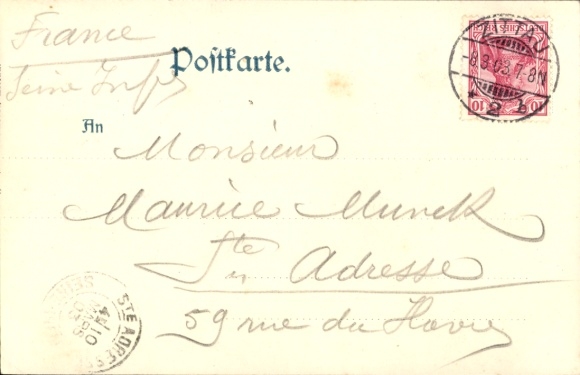 France
Seine Infre
Postkarte.
An
Monsieur
Maurice Munck
Ste Adresse
59 rue du Havre
ZITTAU
-8.3.03.7-8N
* 2 b
10 10
STE ADRESSE
10
MARS
03